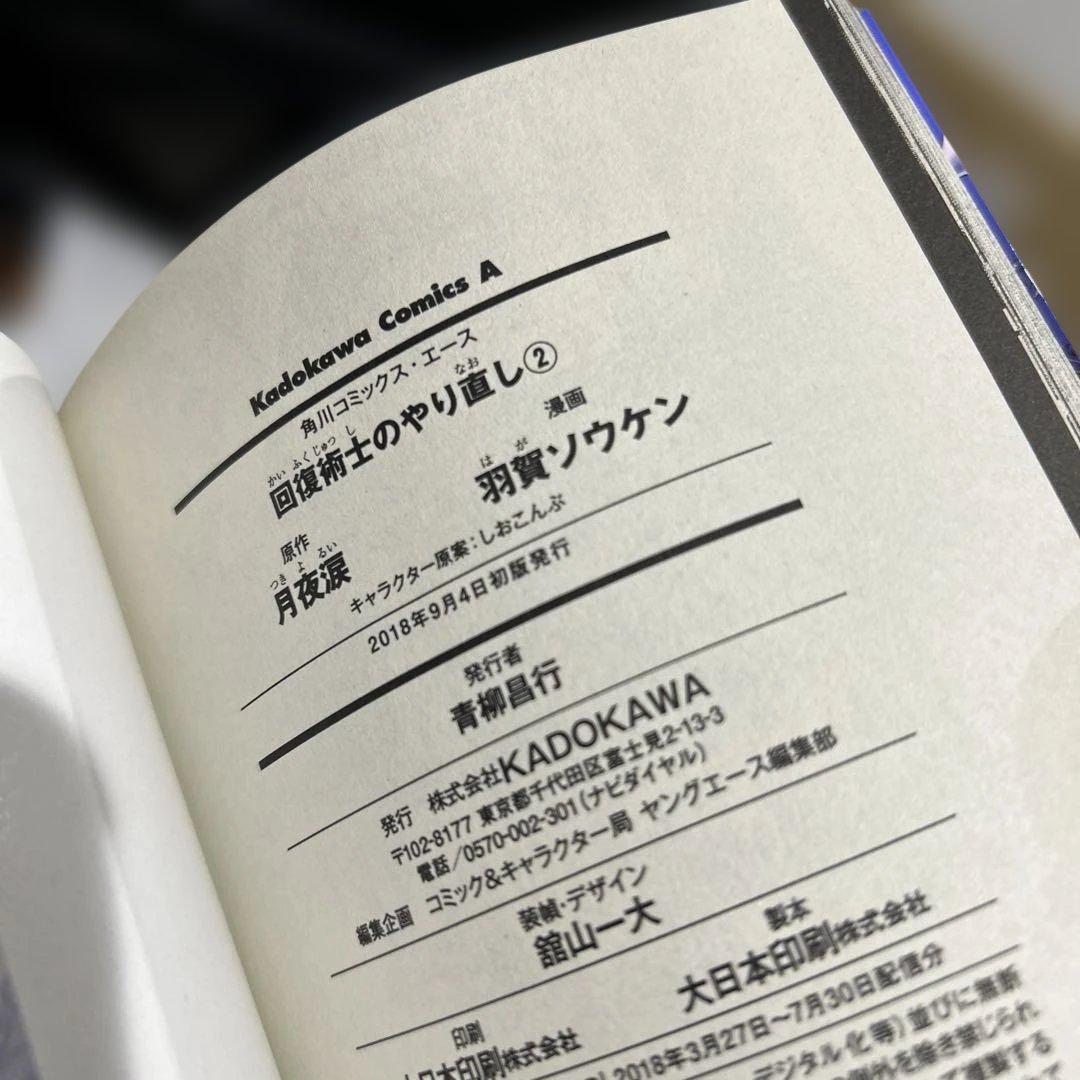 Kadokawa Comics A
角川コミックス・エース
かいふくじゅつし なお
回復術士のやり直し②
漫画
はが
羽賀ソウケン
原作
つきよ るい
月夜涙
キャラクター原案:しおこんぶ
2018年9月4日初版発行
発行者
青柳昌行
発行 株式会社KADOKAWA
〒102-8177 東京都千代田区富士見2-13-3
電話/0570-002-301(ナビダイヤル)
編集企画 コミック&キャラクター局 ヤングエース編集部
装幀・デザイン
舘山一大
製本
大日本印刷株式会社
印刷
大日本印刷株式会社
2018年3月27日〜7月30日配信分
デジタル化等)並びに無断
例外を除き禁じられ
て複製する